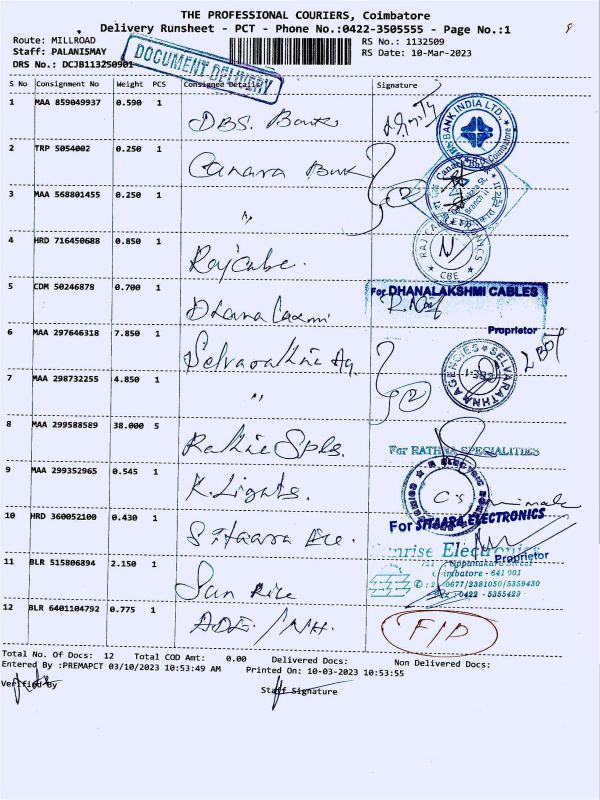 THE PROFESSIONAL COURIERS, Coimbatore
Delivery Runsheet - PCT - Phone No.:0422-3505555 - Page No.:1
Route: MILLROAD
RS No.: 1132509
Staff: PALANISMAY
RS Date: 10-Mar-2023
DRS No.: DCJB113250901
DOCUMENT DELIVERY
S No Consignment No Weight PCS Consignee Details Signature
1 MAA 859049937 0.590 1 DBS. Bank
BANK INDIA LTD.
2 TRP 5054002 0.250 1 Canara Bank
2
Coimbatore
3 MAA 568801455 0.250 1 "
4 HRD 716450688 0.850 1 Rajcabe.
CBE
5 CDM 50246878 0.700 1 Dhana Laxmi
For DHANALAKSHMI CABLES
Proprietor
6 MAA 297646318 7.850 1 Selvarathne Ag
SELVARATHNA AGENCIES
7 MAA 298732255 4.850 1 "
2
8 MAA 299588589 38.000 5 Rathne Spls.
For RATHNA SPECIALITIES
9 MAA 299352965 0.545 1 K. Lights.
10 HRD 360052100 0.430 1 Sitaara Ele.
For SITAARA ELECTRONICS
Proprietor
11 BLR 515806894 2.150 1 Sun Rice
Sunrise Electronics
Oppanakara Street
Coimbatore - 641 001
0677/2381050/5359430
0422 - 5355429
12 BLR 6401104792 0.775 1 ADE / NH.
F/D
Total No. Of Docs: 12 Total COD Amt: 0.00 Delivered Docs: Non Delivered Docs:
Entered By :PREMAPCT 03/10/2023 10:53:49 AM Printed On: 10-03-2023 10:53:55
Verified By
Staff Signature